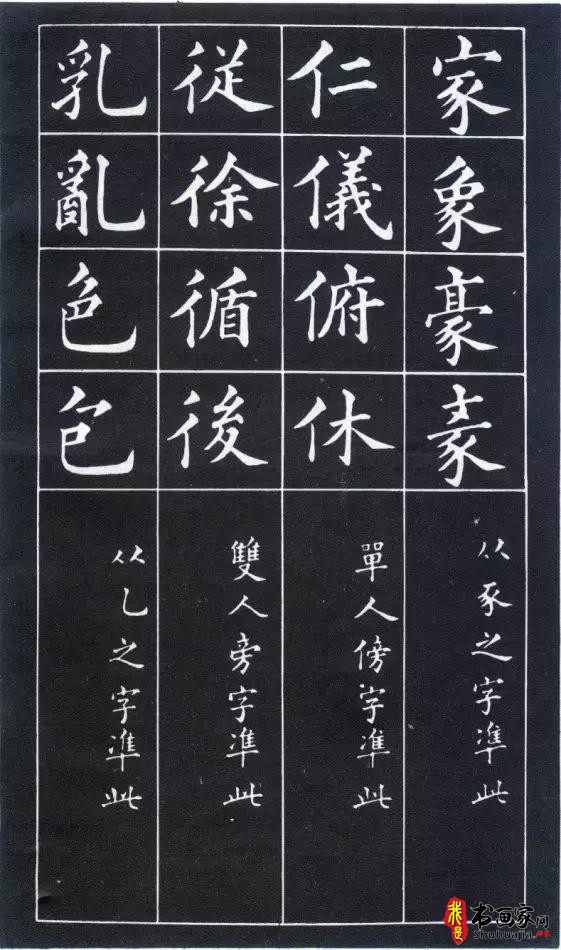 家象豪
从豕之字凖此
仁儀俯休
單人傍字凖此
従徐循後
雙人旁字凖此
乳亂色包
从乚之字凖此
我是
书画家网
Shuhuajia.net